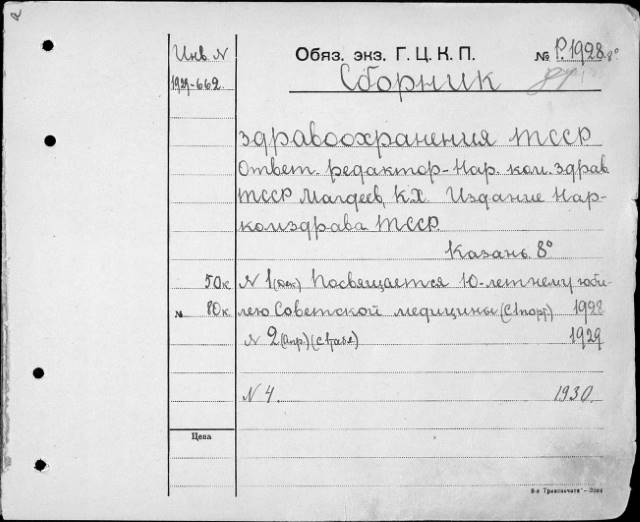 Инв. N
1929-662.
Обяз. экз. Г. Ц. К. П. № Р.1928 8°
Сборник
здравоохранения ТССР
Ответ. редактор - Нар. ком. здрав
ТССР Магдеев, К.Х. Издание Нар-
комздрава ТССР.
Казань. 8°
50к N 1 (дек) Посвящается 10-летнему юби-
№ 80к. лею Советской медицины (с 1 порт.) 1928
N 2 (апр.) (с 1 табл) 1929
N 4. 1930.
Цена